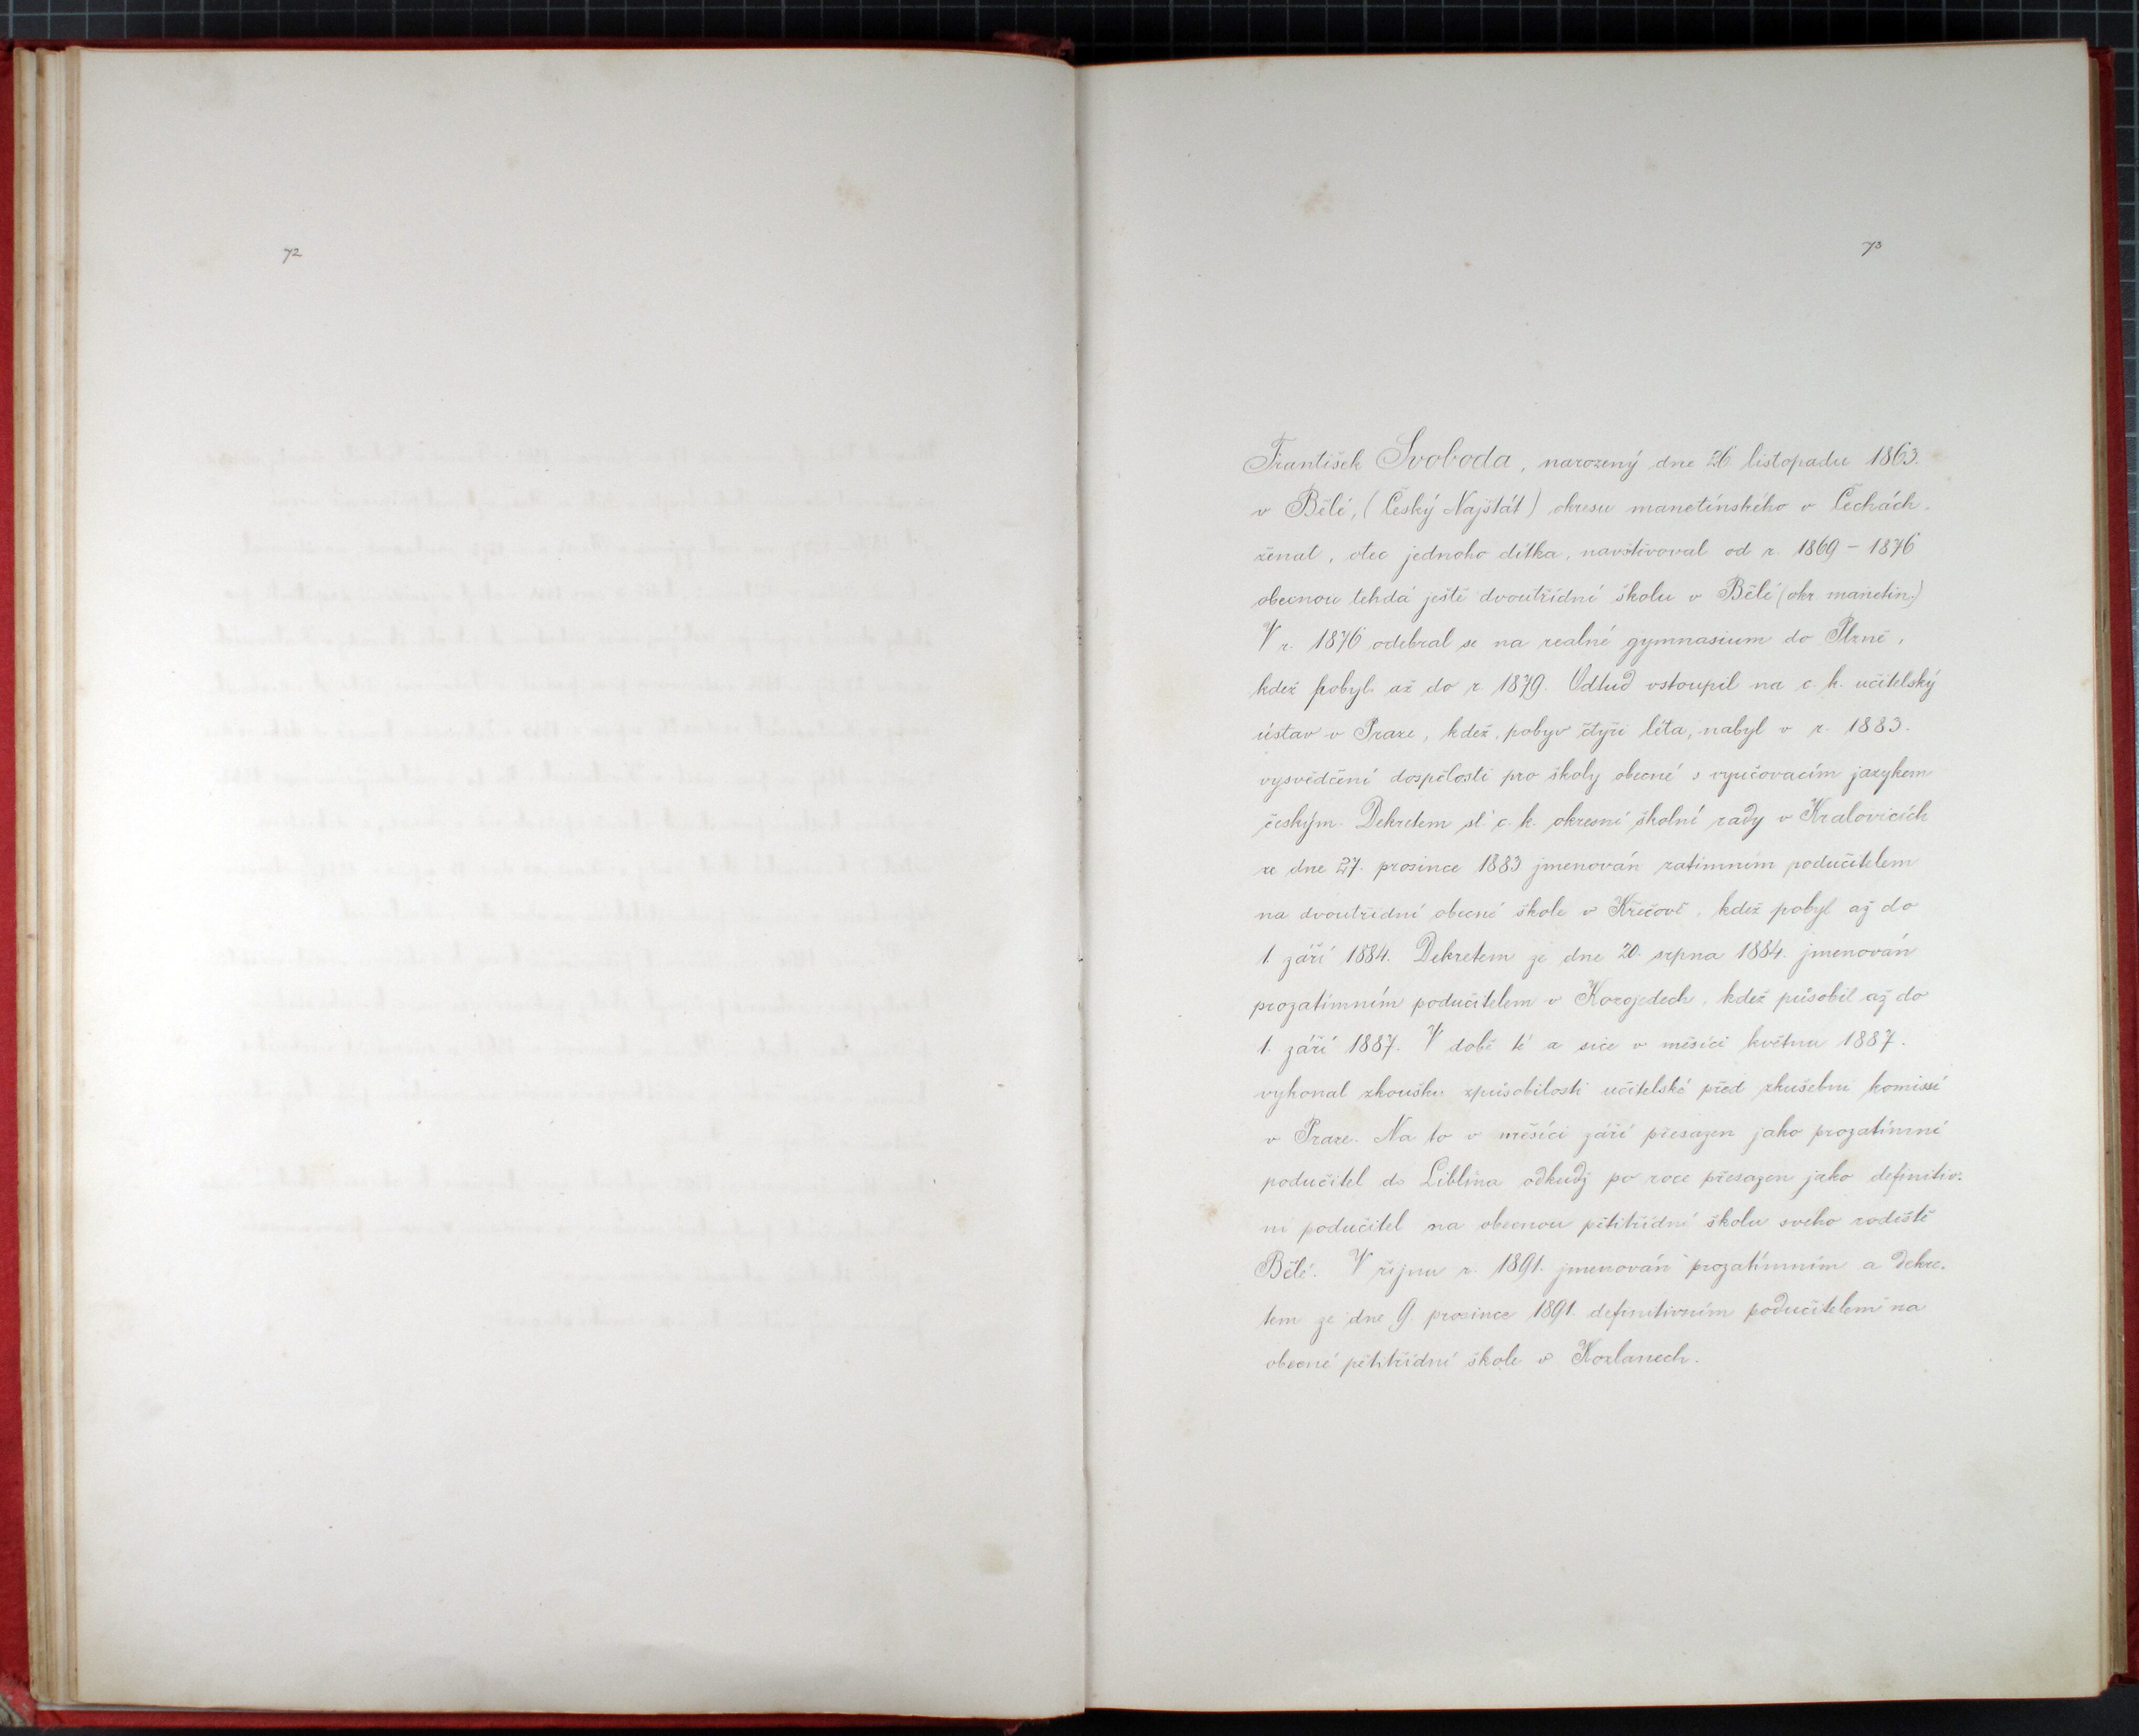 72
73
František Svoboda, narozený dne 26 listopadu 1863.
v Bělé, (Český Najštát) okresu manetínského v Čechách,
ženat, otec jednoho dítka, navštěvoval od r. 1869 - 1876
obecnou tehdá ještě dvoutřídní školu v Bělé (okr. manetín.)
V r. 1876 odebral se na realné gymnasium do Plzně,
kdež pobyl až do r. 1879. Odtud vstoupil na c. k. učitelský
ústav v Praze, kdež, pobyv čtyři léta, nabyl v r. 1883.
vysvědčení dospělosti pro školy obecné s vyučovacím jazykem
českým. Dekretem sl. c. k. okresní školní rady v Kralovicích
ze dne 27. prosince 1883 jmenován zatimním podučitelem
na dvoutřídní obecné škole v Křečově, kdež pobyl až do
1. září 1884. Dekretem ze dne 20. srpna 1884. jmenován
prozatímním podučitelem v Kozojedech, kdež působil až do
1. září 1887. V době té a sice v měsíci květnu 1887.
vykonal zkoušku způsobilosti učitelské před zkušební komissí
v Praze. Na to v měsíci září přesazen jako prozatímní
podučitel do Liblína odkudž po roce přesazen jako definitiv-
ní podučitel na obecnou pětitřídní školu svého rodiště
Bělé. V říjnu r. 1891. jmenován prozatímním a dekre-
tem ze dne 9. prosince 1891. definitivním podučitelem na
obecné pětitřídní škole v Kozlanech.